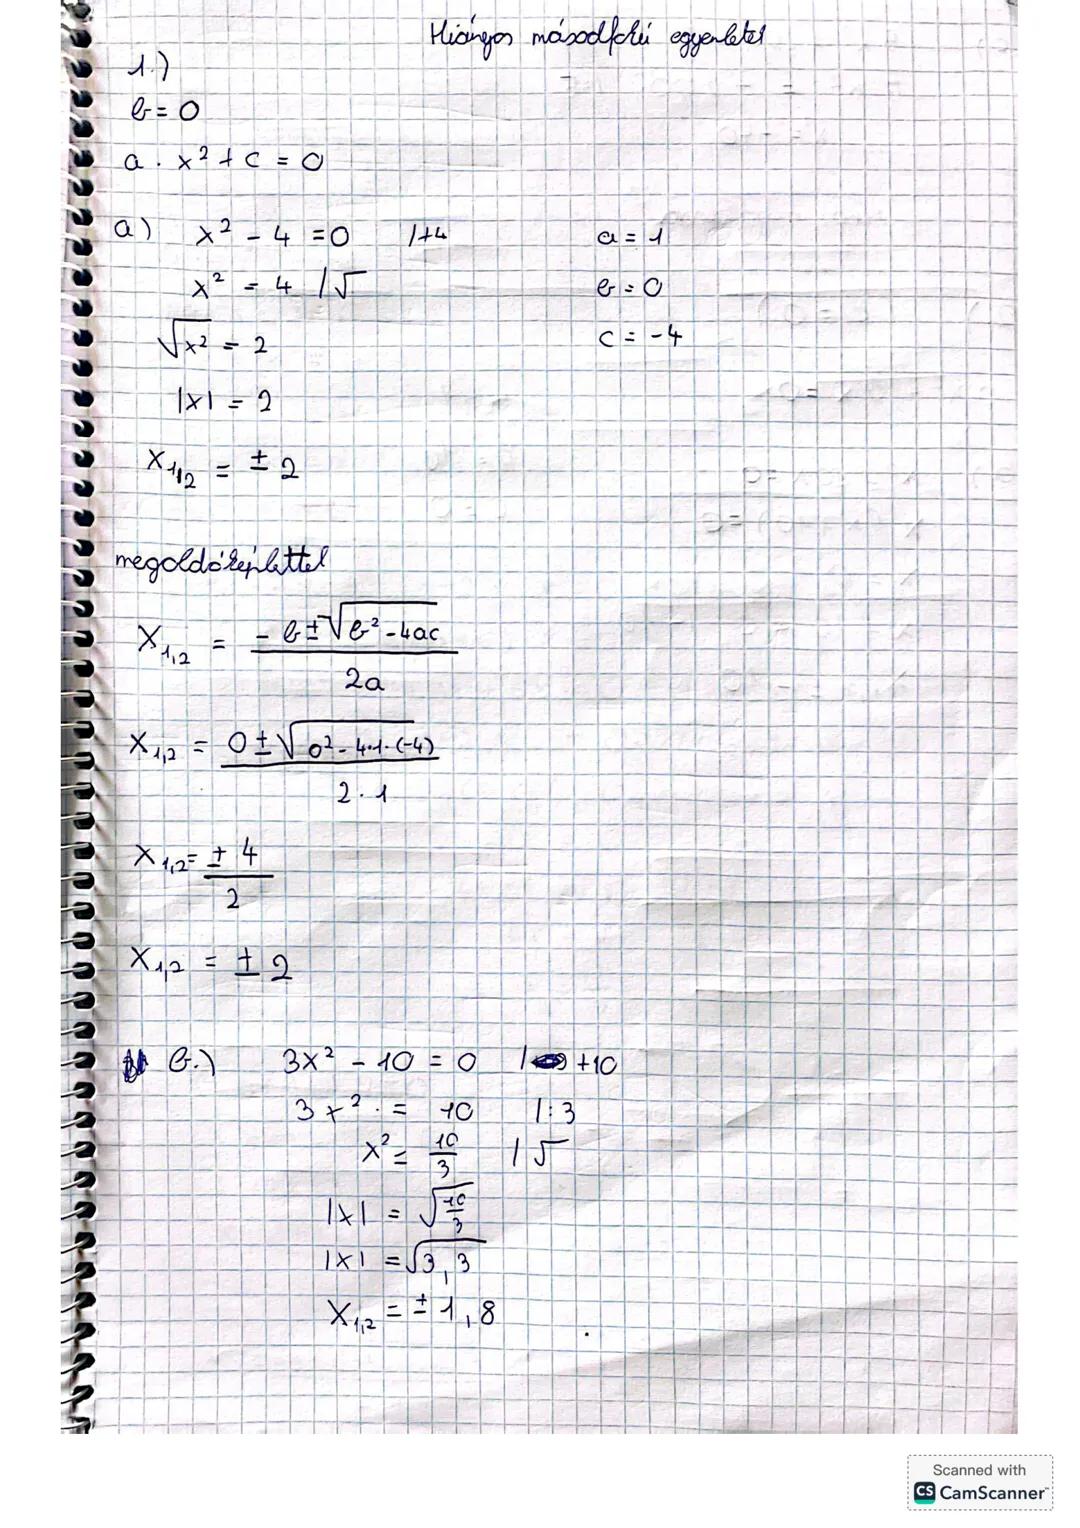 Hiányos másodfokú egyenletek
1.)
b = 0
a · x² + c = 0
a) x² - 4 = 0 /+4 a = 1
x² = 4 /√ b = 0
√x² = 2 c = -4
|x| = 2
x₁,₂ = ± 2
megoldóképlettel
x₁,₂ = -b±√b²-4ac / 2a
x₁,₂ = 0±√0²-4·1·(-4) / 2·1
x₁,₂ = ±4 / 2
x₁,₂ = ± 2
b.) 3x² - 10 = 0 / +10
3x² = 10 /:3
x² = 10/3 /√
|x| = √10/3
|x| = √3,3
x₁,₂ = ± 1,8
Scanned with
CS CamScanner